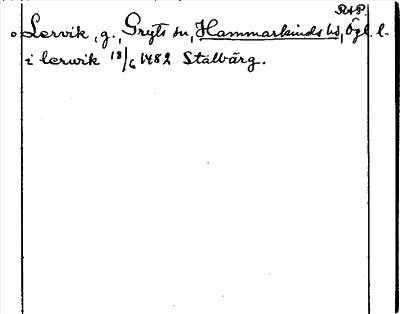 RAP.
Lervik, g., Gryts sn, Hammarkinds hd, Ögl. l.
i lerwik 18/6 1482 Stalbärg.